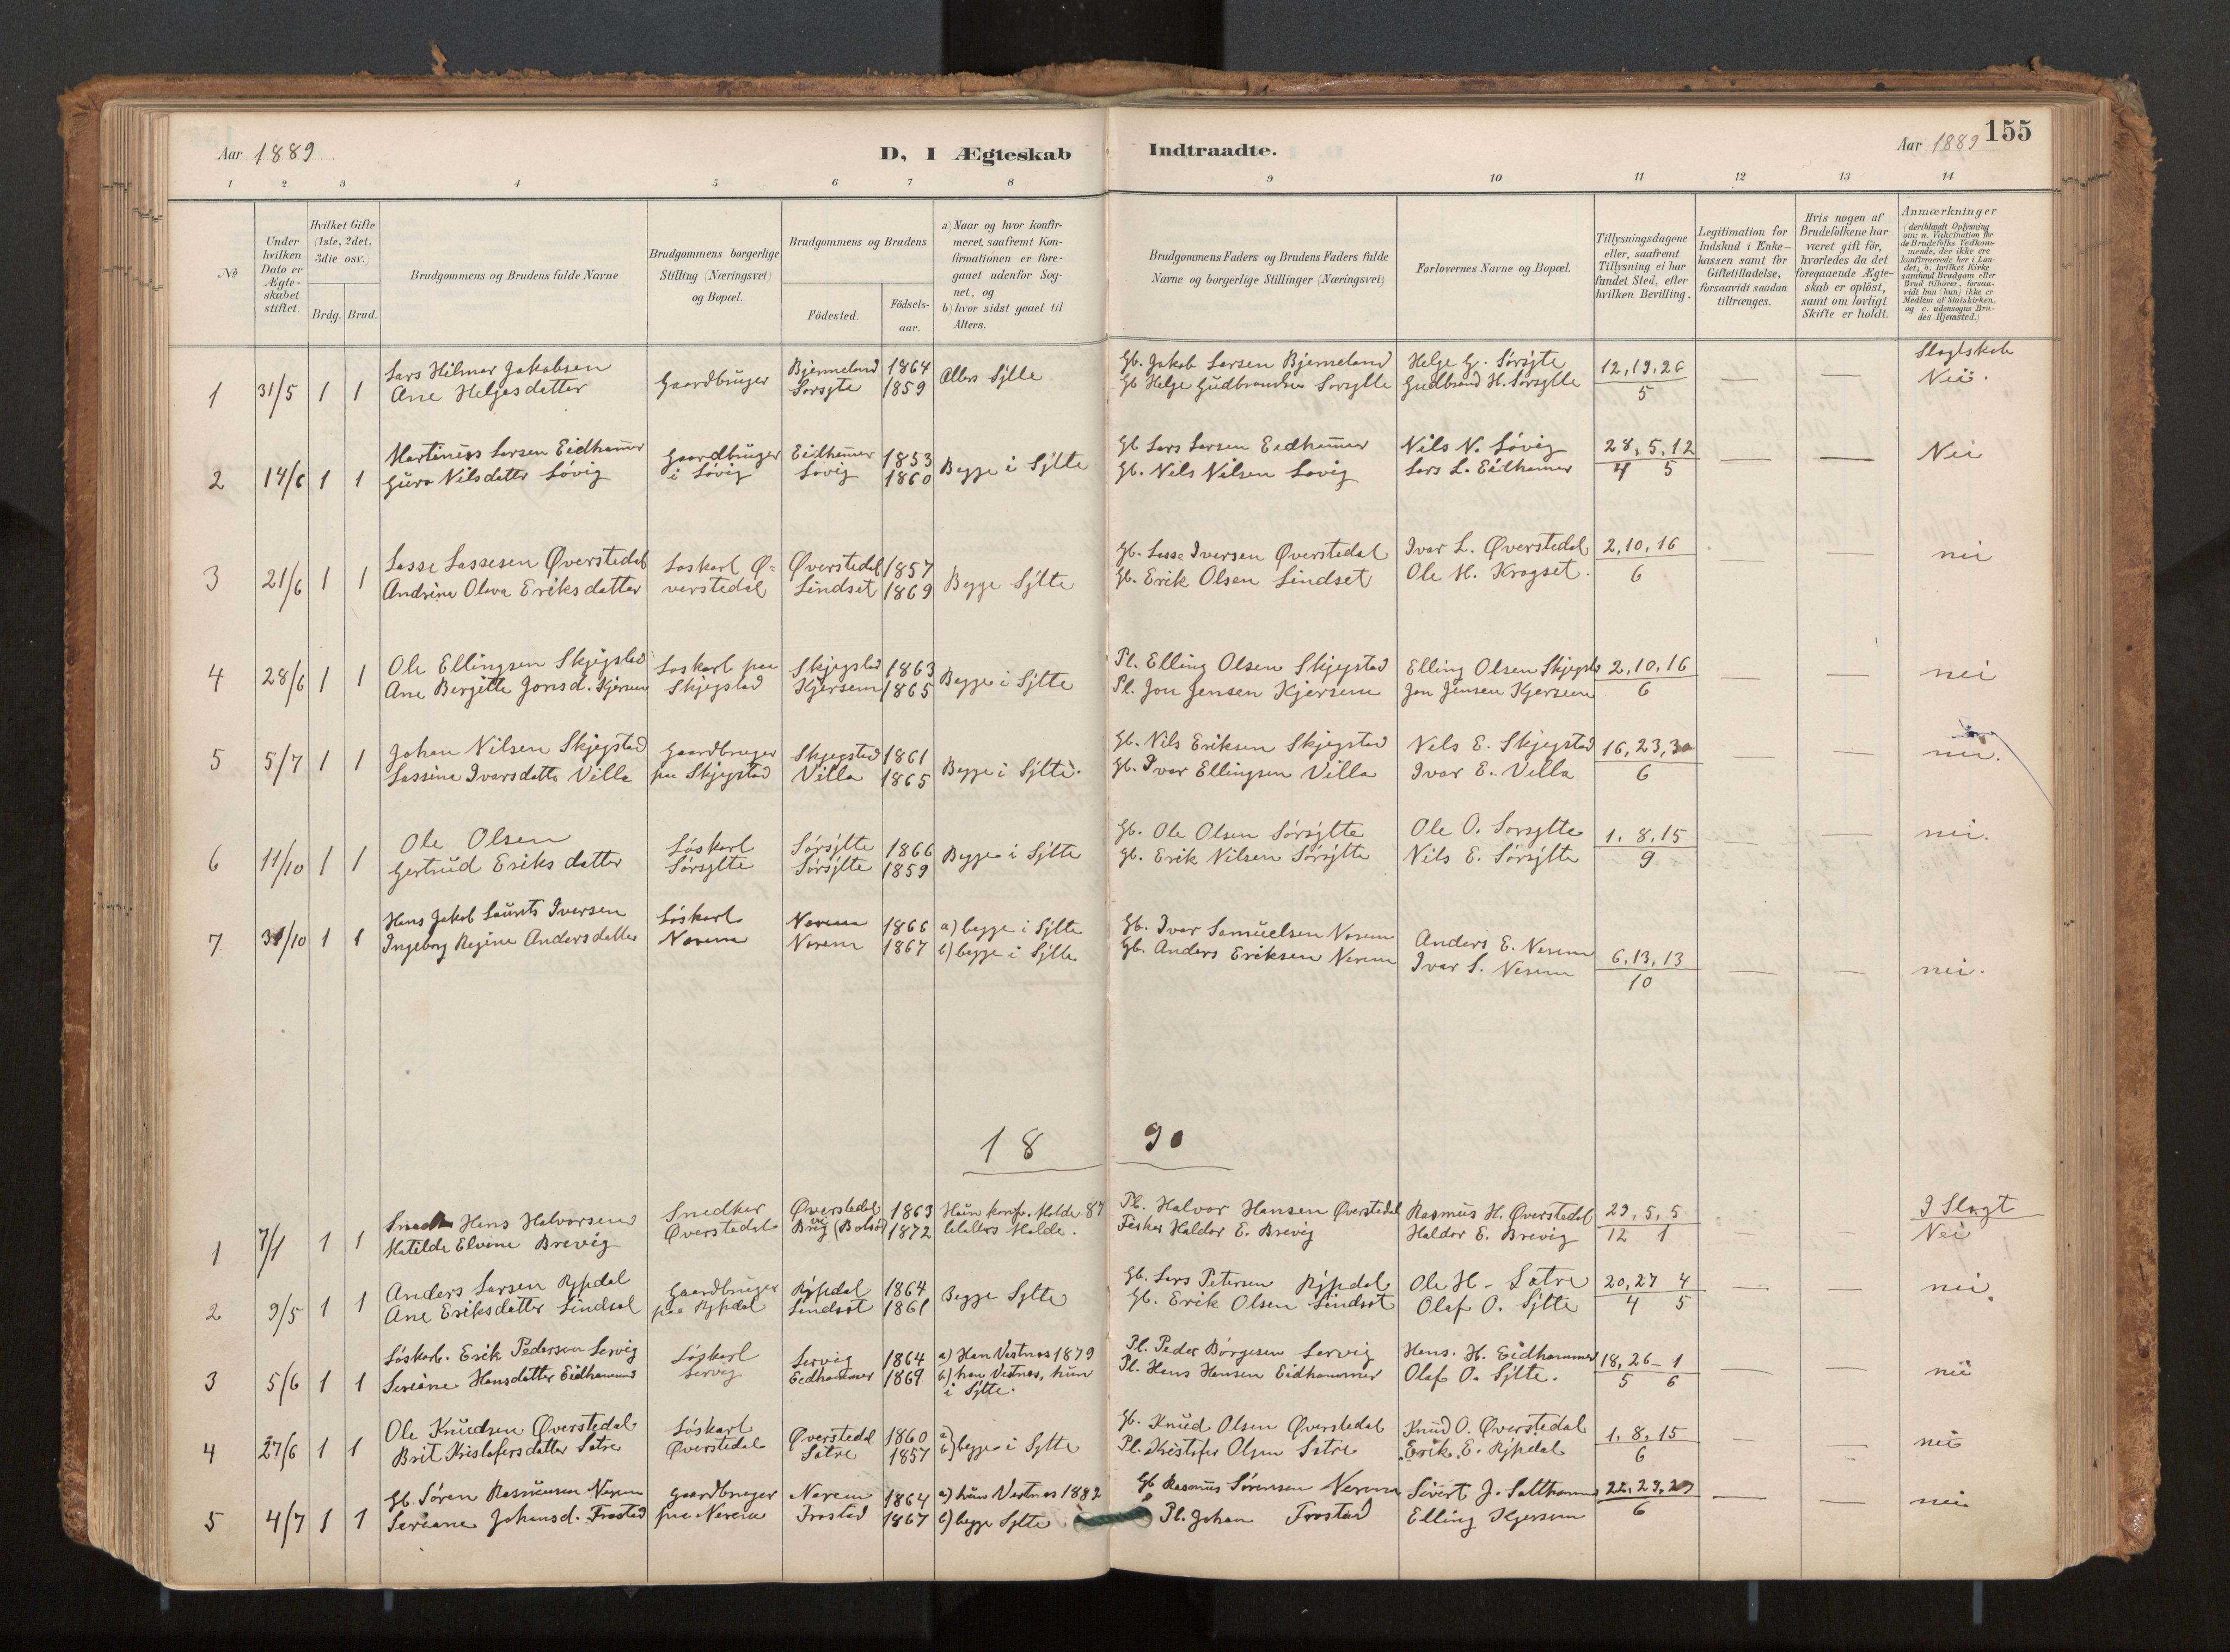 155
Aar 1889
D, I Ægteskab Indtraadte.
Aar 1889
1 2 3 4 5 6 7 8 9 10 11 12 13 14
No
Under hvilken Dato er Ægteskabet stiftet.
Hvilket Gifte (1ste, 2det, 3die osv.)
Brdg. Brud.
Brudgommens og Brudens fulde Navne
Brudgommens borgerlige Stilling (Næringsvei) og Bopæl.
Brudgommens og Brudens
Födested.
Födsels-aar.
a) Naar og hvor konfirmeret, saafremt Konfirmationen er foregaaet udenfor Sognet, og
b) hvor sidst gaaet til Alters.
Brudgommens Faders og Brudens Faders fulde Navne og borgerlige Stillinger (Næringsvei)
Forlovernes Navne og Bopæl.
Tillysningsdagene eller, saafremt Tillysning ei har fundet Sted, efter hvilken Bevilling.
Legitimation for Indskud i Enkekassen samt for Giftetilladelse, forsaavidt saadan tiltrænges.
Hvis nogen af Brudefolkene har været gift för, hvorledes da det foregaaende Ægteskab er oplöst, samt om lovligt Skifte er holdt.
Anmærkninger (deriblandt Oplysning om: a. Vakcination for de Brudefolks Vedkommende, der ikke ere konfirmerede her i Landet; b. hvilket Kirkesamfund Brudgom eller Brud tilhörer, forsaavidt han (hun) ikke er Medlem af Statskirken, og c. udensogns Brudes Hjemsted.)
Slagtskab
1 31/5 1 1 Lars Hilmar Jakobsen Gaardbruger Bjermeland 1864 Allers Sylte Gb. Jakob Larsen Bjermeland Helge G. Sørsylte 12,19,26 — — Nei.
Ane Helgesdatter Sørsylte 1859 Gb Helge Gudbrandsen Sørsylte Gudbrand H. Sørsylte 5
2 14/6 1 1 Martinus Larsen Eidhamer Gaardbruger Eidhamer 1853 Begge i Sylte Gb Lars Larsen Eidhamer Nils N. Løvig 28, 5, 12 — — Nei
Guro Nilsdatter Løvig i Løvig Løvig 1860 Gb. Nils Nilsen Løvig Lars L. Eidhamer 4 5
3 21/6 1 1 Lasse Lassesen Øverstedal Løskarl Ø- Øverstedal 1857 Begge Sylte Gb. Lasse Iversen Øverstedal Ivar L. Øverstedal 2, 10, 16 — nei
Andrine Olava Eriksdatter verstedal Lindset 1869 Gb. Erik Olsen Lindset Ole H. Kragset. 6
4 28/6 1 1 Ole Ellingsen Skjegstad Løskarl paa Skjegstad 1863 Begge i Sylte Pl. Elling Olsen Skjegstad Elling Olsen Skjegsta 2, 10, 16 — nei
Ane Bergitte Jonsd. Kjersem Skjegstad Kjersem 1865 Pl. Jon Jensen Kjersem Jon Jensen Kjersem 6
5 5/7 1 1 Johan Nilsen Skjegstad Gaardbruger Skjegstad 1861 Begge i Sylte. Gb. Nils Eriksen Skjegstad Nils E. Skjegstad 16, 23, 30 — — nei.
Lassine Ivarsdatter Villa paa Skjegstad Villa 1865 Gb. Ivar Ellingsen Villa Ivar E. Villa 6
6 11/10 1 1 Ole Olsen Løskarl Sørsylte 1866 Begge i Sylte Gb. Ole Olsen Sørsylte Ole O. Sørsylte 1. 8. 15 — — nei.
Gertrud Eriksdatter Sørsylte Sørsylte 1859 Gb. Erik Nilsen Sørsylte Nils E. Sørsylte 9
7 31/10 1 1 Hans Jakob Laurits Iversen Løskarl Nerem 1866 a) begge i Sylte Gb. Ivar Samuelsen Nerem Anders E. Nerem 6, 13, 13 — — nei.
Ingeborg Regine Andersdatter Nerem Nerem 1867 b) begge i Sylte Gb. Anders Eriksen Nerem Ivar S. Nerem 10
18 90
I Slagt
1 7/1 1 1 Hans Halvorsen Snedker Øverstedal 1863 Hun konf. Molde 87 Pl. Halvor Hansen Øverstedal Rasmus H. Øverstedal 29, 5, 5 — Nei
Matilde Elvine Brevig Øverstedal Brevig (Bolsø) 1872 Molde. Fisker Haldor E. Brevig Haldor E. Brevig 12 1
2 9/5 1 1 Anders Larsen Rypdal Gaardbruger Rypdal 1864 Begge Sylte Gb. Lars Petersen Rypdal Ole H. Sætre 20, 27 4 — — nei.
Ane Eriksdatter Lindset paa Rypdal Lindset 1861 Gb. Erik Olsen Lindset Olaf O. Sylte 4 5
3 5/6 1 1 Løskarl. Erik Pedersen Lervig Løskarl Lervig 1864 a) Han Vestnes 1879 Pl. Peder Børgesen Lervig Hans. H. Eidhammer 18, 26 - 1 — — nei
Seriane Hansdatter Eidhammer Lervig Eidhammer 1869 b) han Vestnes, hun i Sylte. Pl. Hans Hansen Eidhammer Olaf O. Sylte. 5 6
4 27/6 1 1 Ole Knudsen Øverstedal Løskarl Øverstedal 1860 a) Gb. Knud Olsen Øverstedal Knud O. Øverstedal 1, 8, 15 — — nei
Brit Kristofersdatter Sætre Øverstedal Sætre 1857 b) begge i Sylte Pl. Kristofer Olsen Sætre Erik E. Rypdal 6
5 4/7 1 1 Gb. Søren Rasmussen Nerem Gaardbruger Nerem 1864 a) hun Vestnes 1882 Gb Rasmus Sørensen Nerem Sivert J. Salthammer 22, 29, 29 — — nei
Seriane Johansd. Frostad paa Nerem Frostad 1867 b) begge Sylte Pl. Johan Frostad Elling Kjersem 6